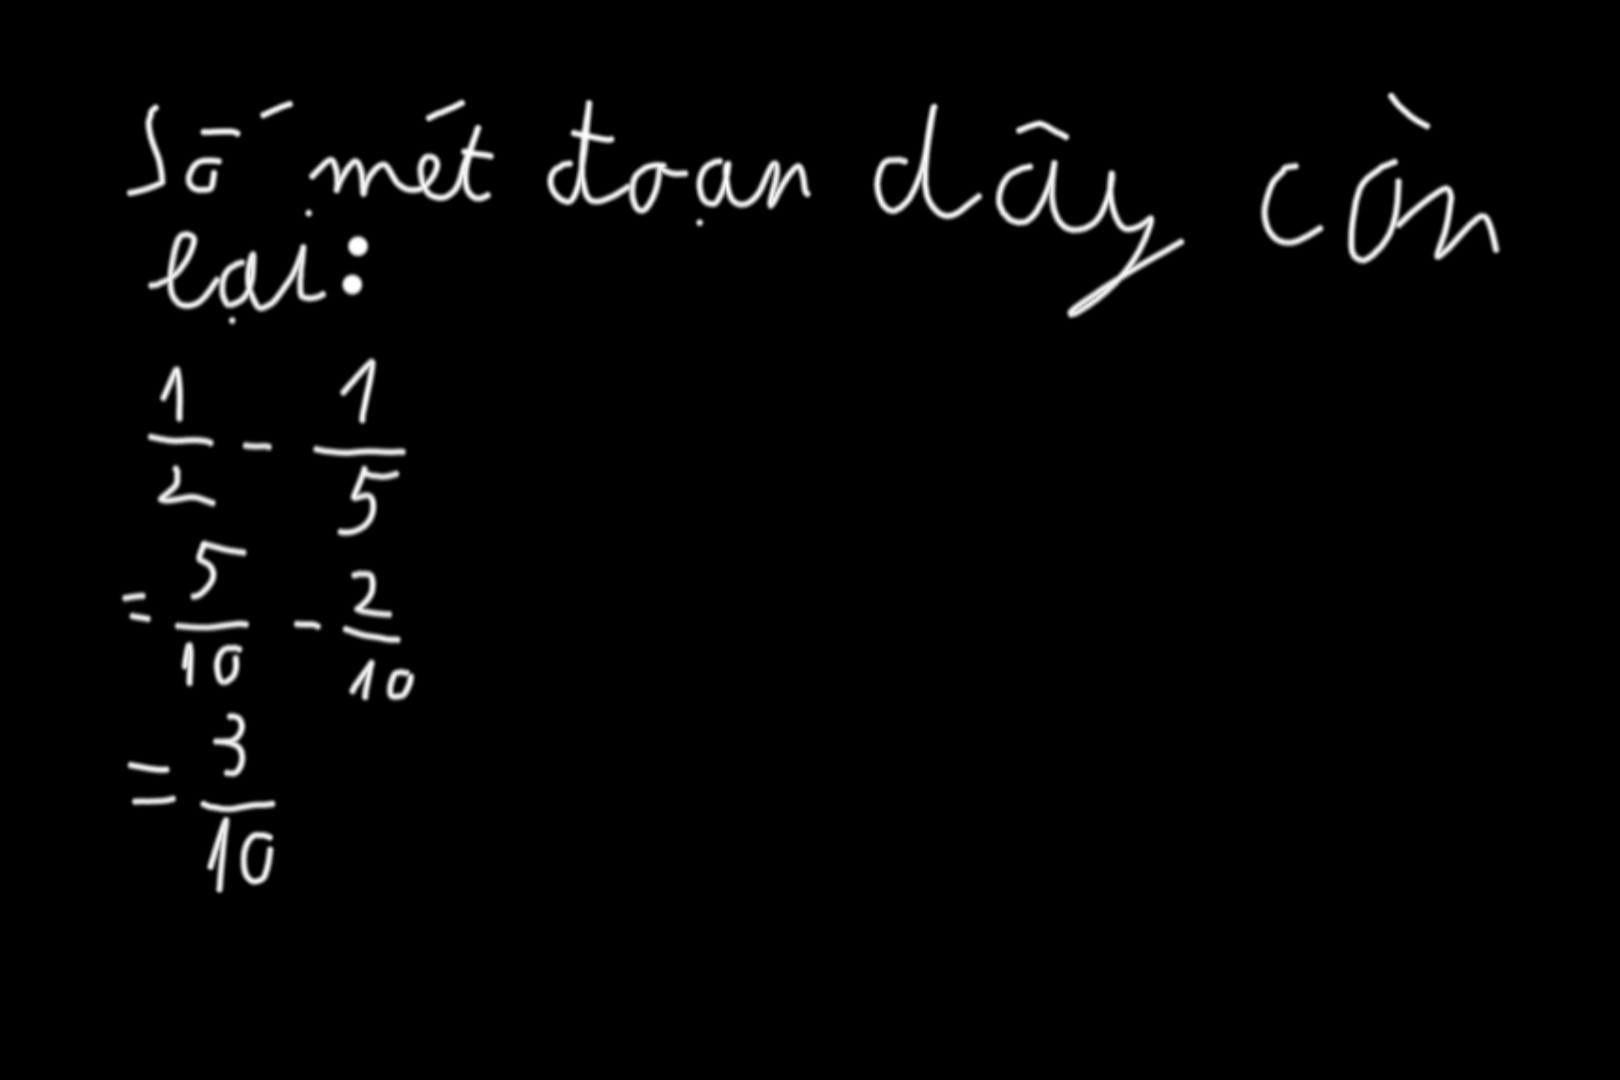 Số mét đoạn dây còn
lại:
1/2 - 1/5
= 5/10 - 2/10
= 3/10